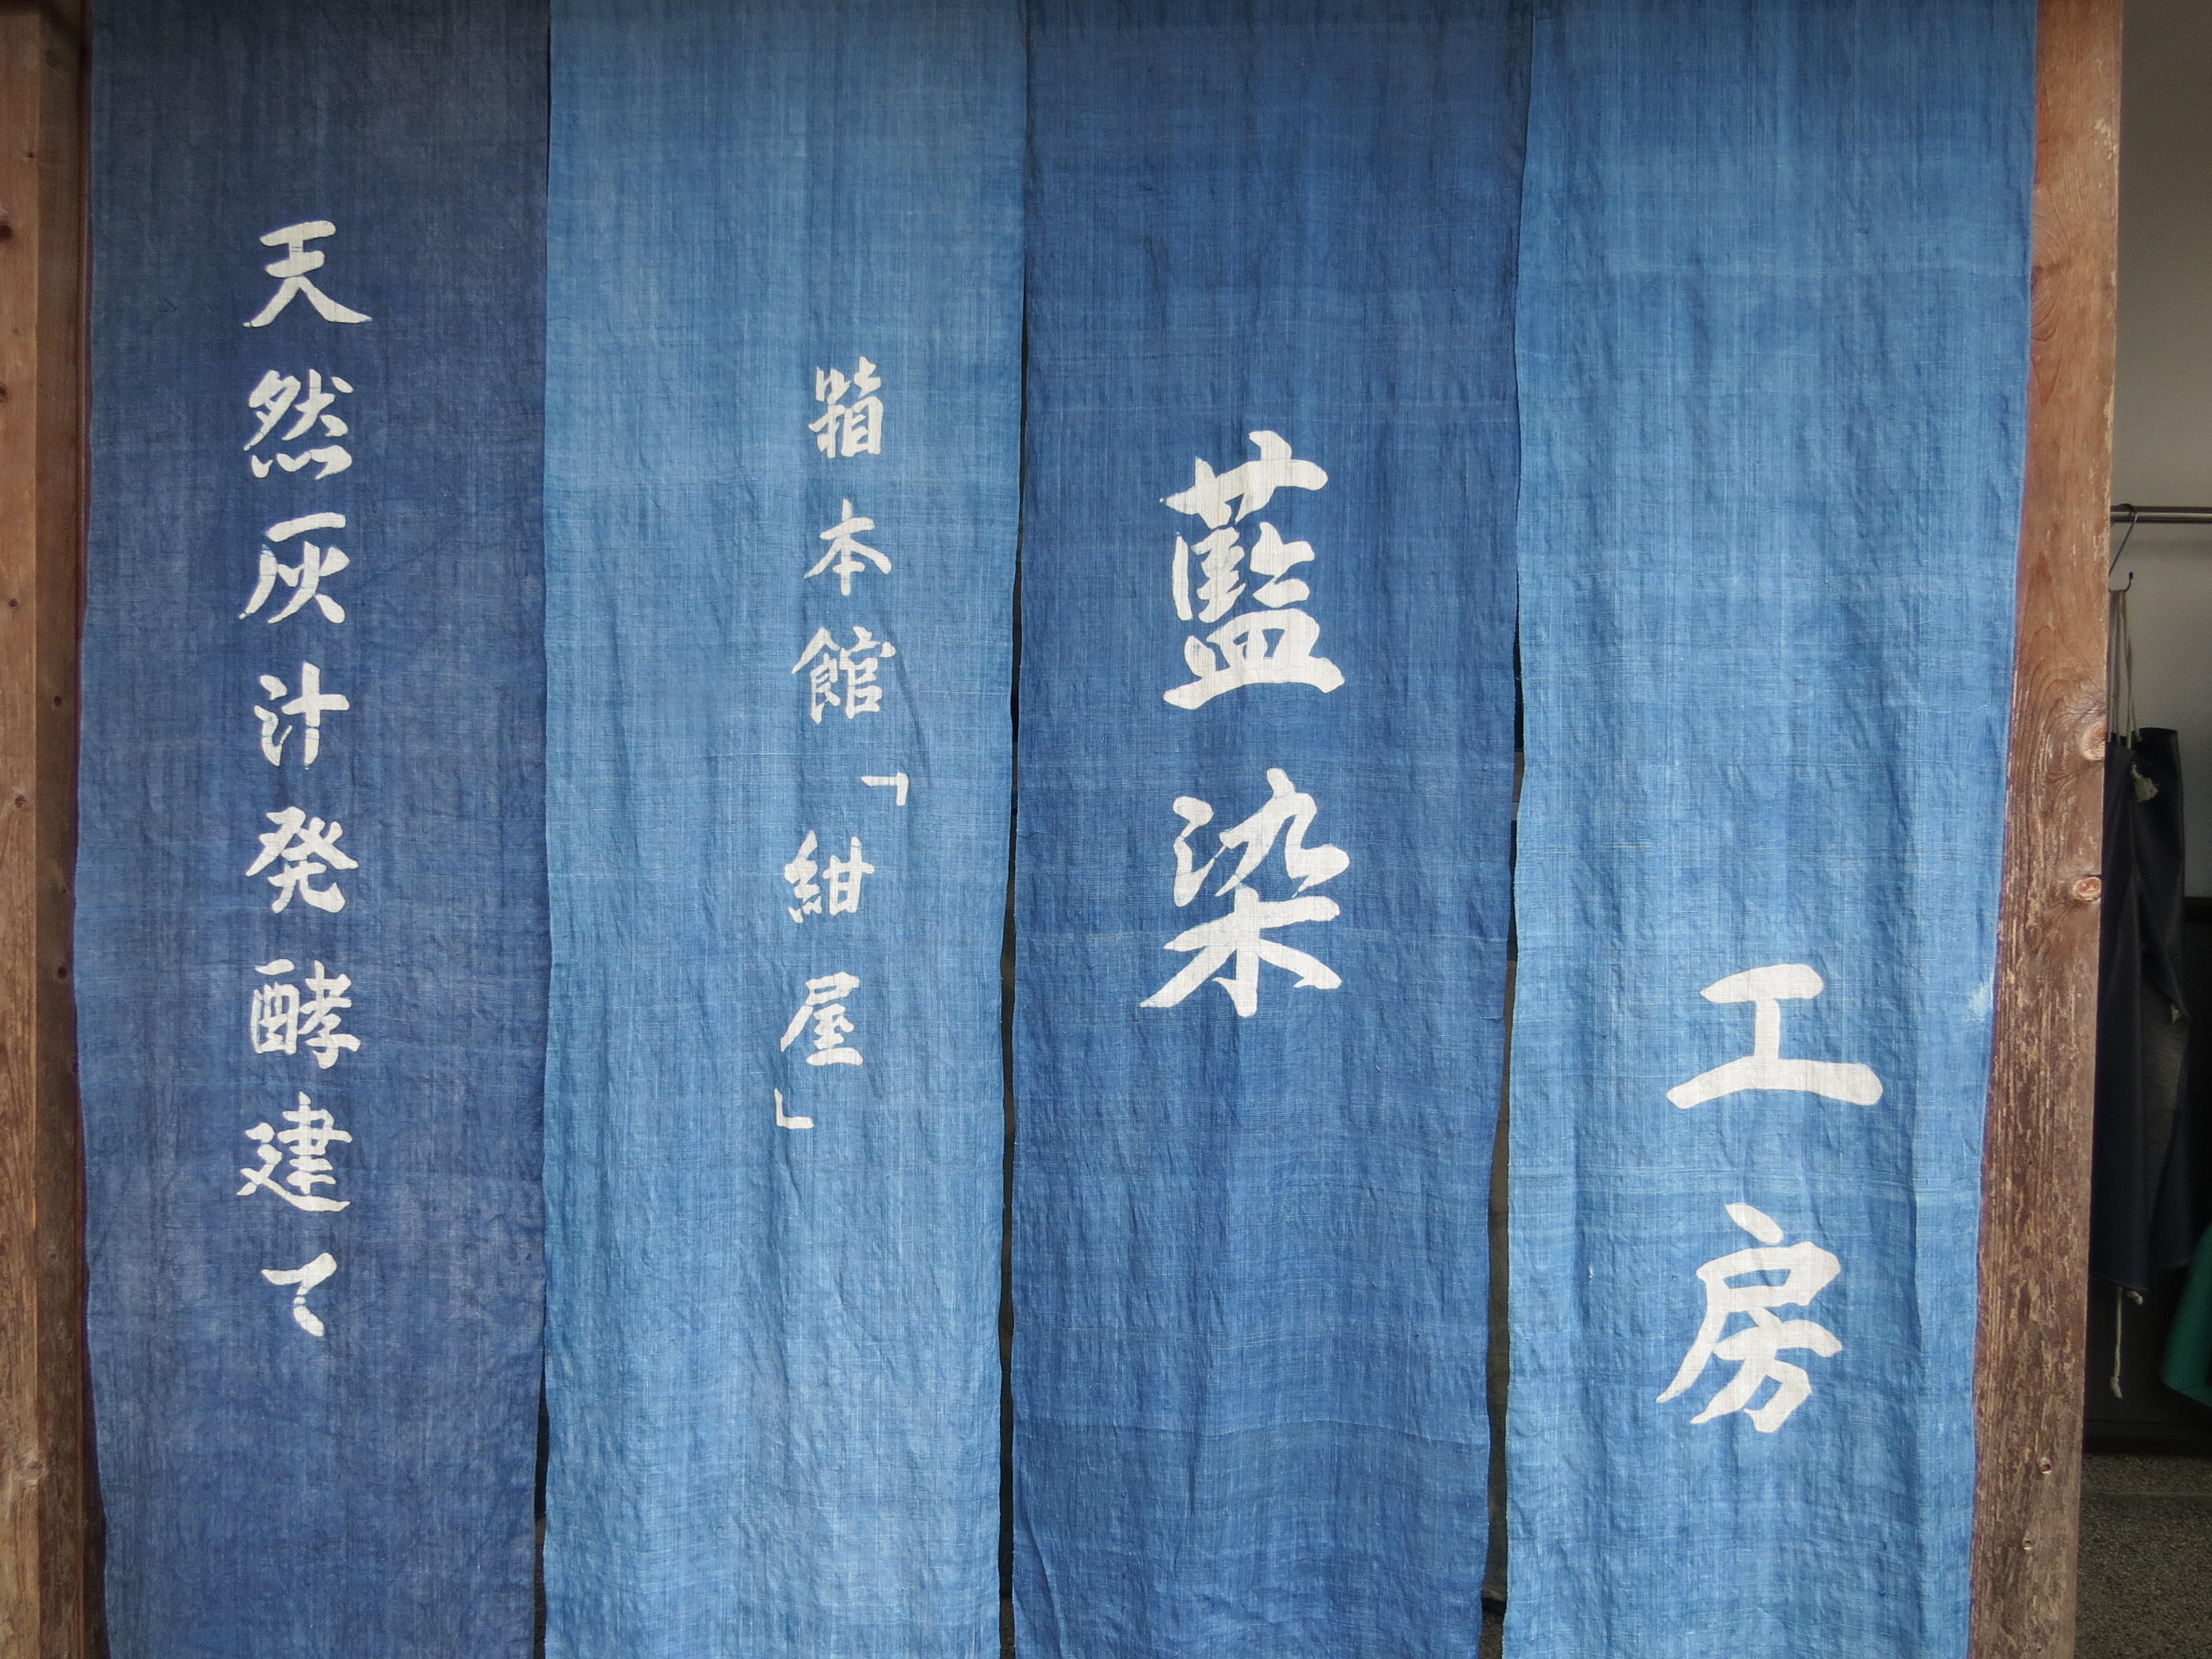 天然灰汁発酵建て
箱本館「紺屋」
藍染
工房